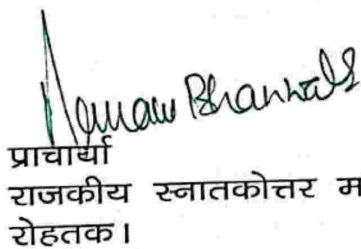 प्राचार्या
राजकीय स्नातकोत्तर म
रोहतक।